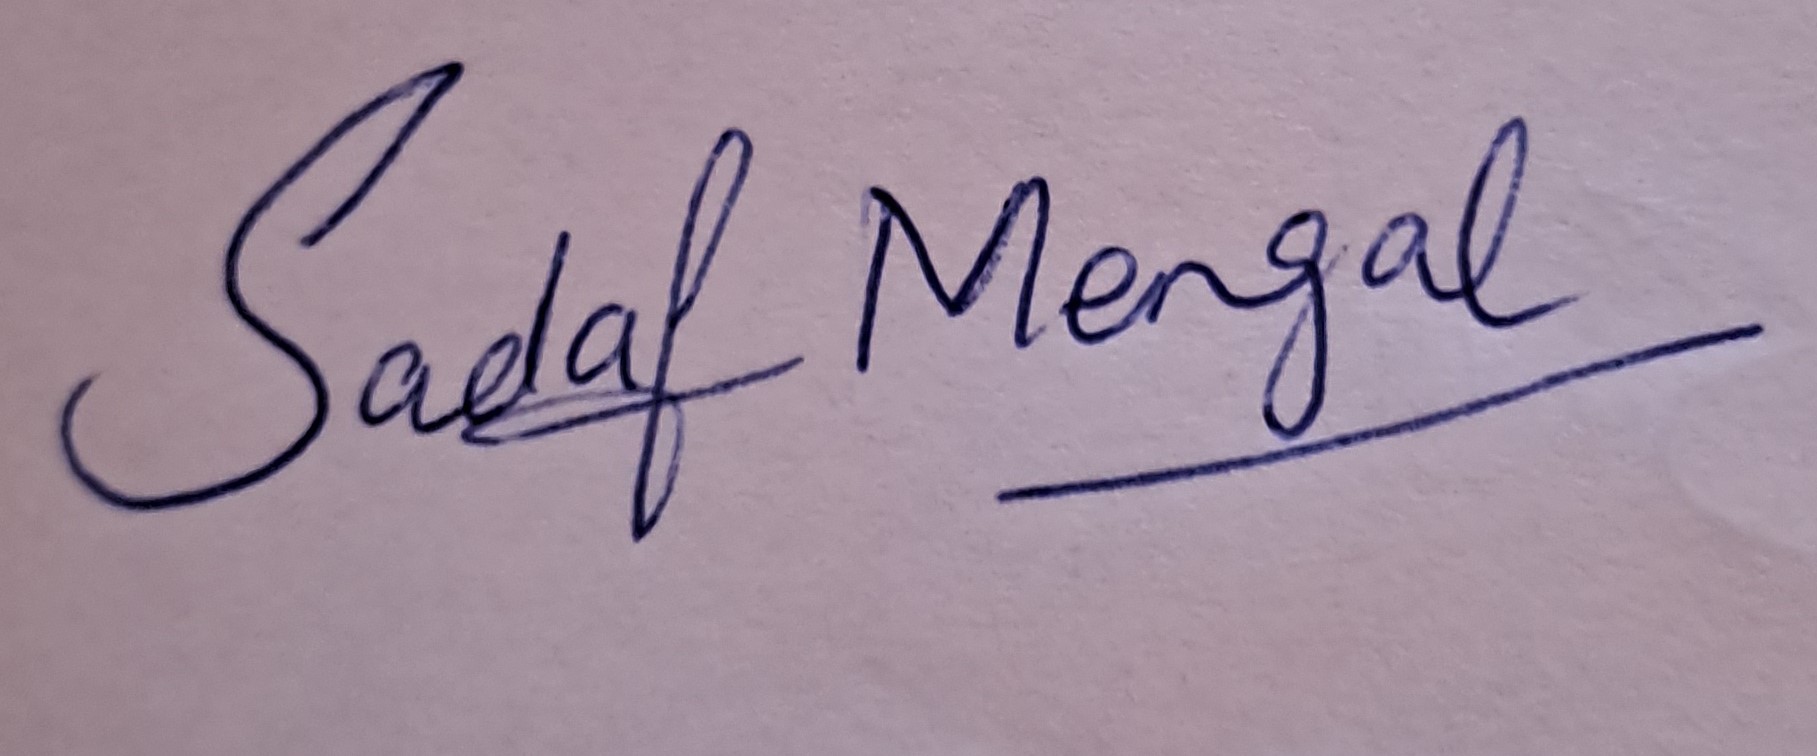 Sadaf Mengal